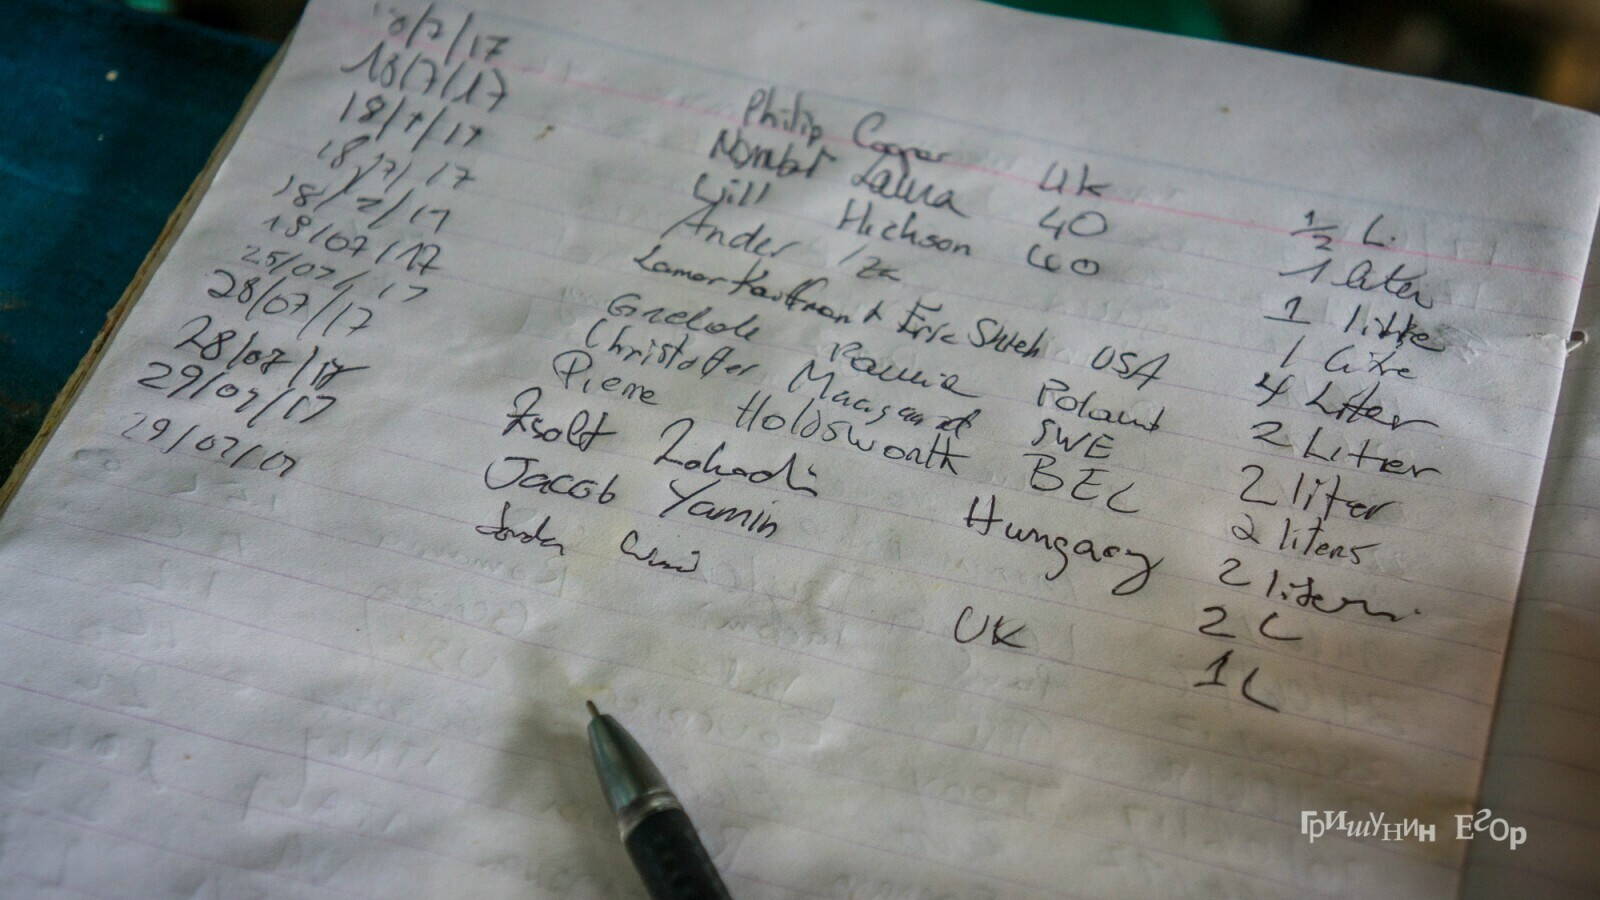 18/7/17 Philip Cooper UK 1/2 L.
18/7/17 Nombot Laura 40 1 liter
18/7/17 Will Hickson 60 1 litre
18/7/17 Ander 1 Litre
18/7/17 Lamar Kauffman & Eric Shieh USA 4 Liter
19/07/17 Poland 2 Liter
25/07/17 Christoffer Maagaard SWE 2 liter
28/07/17 Pierre Holdsworth BEL 2 liters
28/07/17 Zsolt Hungary 2 liters
29/07/17 Jacob Yamin UK 2 L
29/07/17 1 L
Гришунин Егор